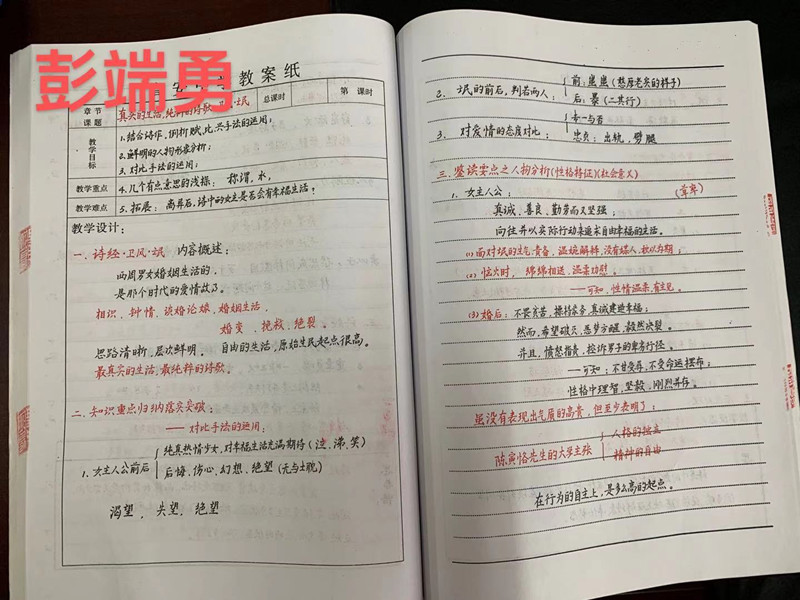 彭端勇
教案纸
章节课题
真实的生活,纯粹的诗歌 卫风·氓
总课时
第 课时
教学目标
1.结合诗作,例析赋、比、兴手法的运用;
2.鲜明的人物形象分析;
3.对比手法的运用;
教学重点
4.几个有点意思的浅探: 称谓,水,
教学难点
5.拓展: 离异后,诗中的女主是否会有幸福生活;
教学设计:
一. 诗经·卫风·氓 内容概述:
西周男女婚姻生活的.
是那个时代的爱情故事.
相识、钟情、谈婚论嫁、婚姻生活、
婚变、挽救、绝裂.
思路清晰,层次鲜明. 自由的生活,原始生民起点很高.
最真实的生活,最纯粹的诗歌.
二. 知识重点归纳落实突破:
—— 对比手法的运用:
1.女主人公前后
纯真热情少女,对幸福生活充满期待(涟、滞、笑)
后悔、伤心、幻想、绝望(无与士耽)
渴望, 失望, 绝望
2. 氓的前后,判若两人:
前: 蚩蚩(憨厚老实的样子)
后: 暴(二其行)
3. 对爱情的态度对比:
专一与否
忠贞: 出轨,劈腿
三. 鉴读要点之人物分析(性格特征)(社会意义)
1. 女主人公:
真诚、善良、勤劳而又坚强;
向往并以实际行动来追求自由幸福的生活.
(1)面对氓的生气,责备,温婉解释,没有媒人,故以为期;
(2)恼火时, 绵绵相送,温柔劝慰.
——可知,性情温柔,有主见.
(3)婚后: 不畏贫苦、操持家务,真诚建造幸福;
然而,希望破灭,恶梦方醒,毅然决裂.
并且,愤怒指责,控诉男子的卑劣行径.
——可知: 不甘受辱,不受命运摆布;
性格中理智,坚毅,刚烈并存.
虽没有表现出气质的高贵,但至少表明了:
陈寅恪先生的大学主张
人格的独立
精神的自由
在行为的自主上,是多么高的起点.